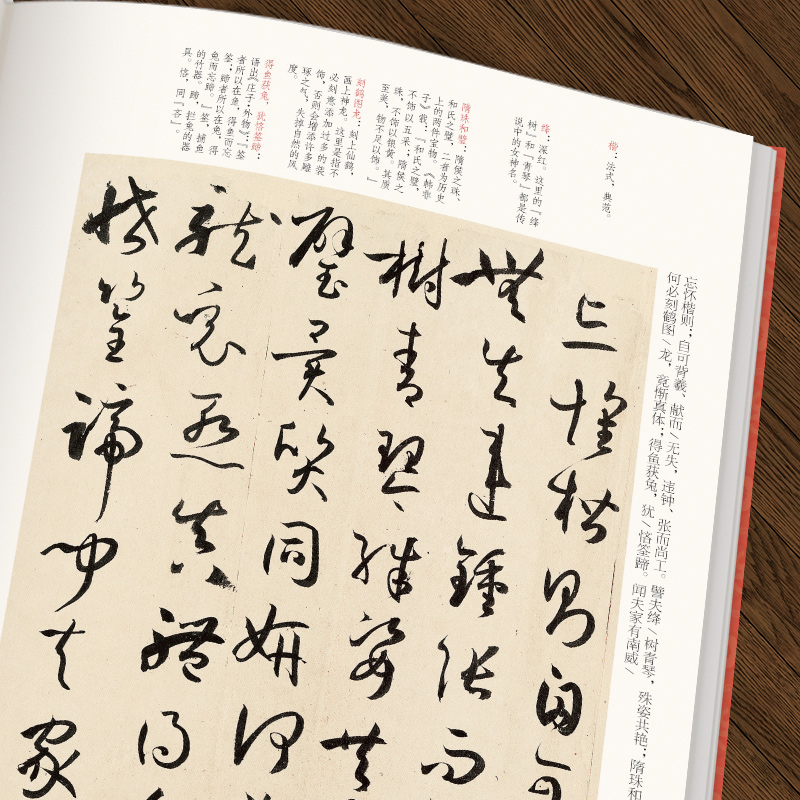 楷：法式，典范。
绛：深红。这里的『绛
树』和『青琴』都是传
说中的女神名。
隋珠和璧：隋侯之珠、
和氏之璧，二者为历史
上的两件宝物。《韩非
子》载：『和氏之璧，
不饰以五采。隋侯之
珠，不饰以银黄。其质
至美，物不足以饰。』
刻鹤图龙：刻上仙鹤，
画上神龙。这里是指不
必刻意添加过多的装
饰，否则会增添许多雕
琢之气，失掉自然的风
度。
得鱼获兔，犹恪筌蹄：
语出《庄子·外物》：『筌
者所以在鱼，得鱼而忘
筌；蹄者所以在兔，得
兔而忘蹄。』筌，捕鱼
的竹器。蹄，拦兔的器
具。恪，同『吝』。
忘怀楷则；自可背羲、献而\无失，违钟、张而尚工。譬夫绛\树青琴，殊姿共艳；隋珠和
何必刻鹤图\龙，竟惭真体；得鱼获兔，犹\恪筌蹄。闻夫家有南威\
亡懷楷則自可
無失違鍾張而
樹青琴殊姿共
璧異質同妍何
龍竟慙真體得
恡筌蹄聞夫家